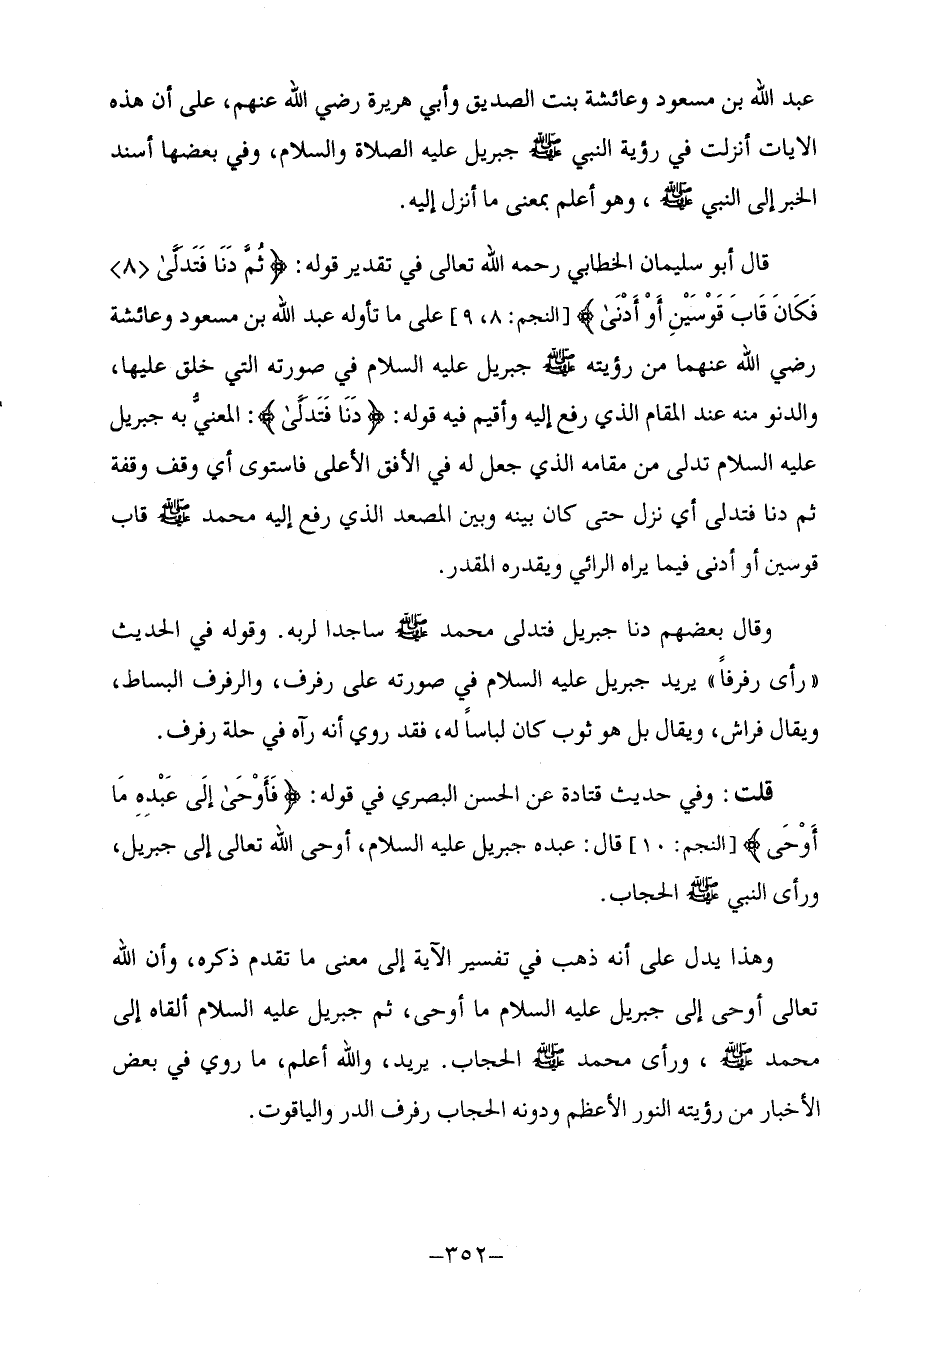 عبد الله بن مسعود وعائشة بنت الصديق وأبي هريرة رضي الله عنهم، على أن هذه
الايات أنزلت في رؤية النبي ﷺ جبريل عليه الصلاة والسلام، وفي بعضها أسند
الخبر إلى النبي ﷺ ، وهو أعلم بمعنى ما أنزل إليه.
قال أبو سليمان الخطابي رحمه الله تعالى في تقدير قوله: ﴿ ثُمَّ دَنَا فَتَدَلَّىٰ <٨>
فَكَانَ قَابَ قَوْسَيْنِ أَوْ أَدْنَىٰ ﴾ [النجم: ٨، ٩] على ما تأوله عبد الله بن مسعود وعائشة
رضي الله عنهما من رؤيته ﷺ جبريل عليه السلام في صورته التي خلق عليها،
والدنو منه عند المقام الذي رفع إليه وأقيم فيه قوله: ﴿ دَنَا فَتَدَلَّىٰ ﴾: المعنيُّ به جبريل
عليه السلام تدلى من مقامه الذي جعل له في الأفق الأعلى فاستوى أي وقف وقفة
ثم دنا فتدلى أي نزل حتى كان بينه وبين المصعد الذي رفع إليه محمد ﷺ قاب
قوسين أو أدنى فيما يراه الرائي ويقدره المقدر.
وقال بعضهم دنا جبريل فتدلى محمد ﷺ ساجدا لربه. وقوله في الحديث
«رأى رفرفاً» يريد جبريل عليه السلام في صورته على رفرف، والرفرف البساط،
ويقال فراش، ويقال بل هو ثوب كان لباساً له، فقد روي أنه رآه في حلة رفرف.
قلت: وفي حديث قتادة عن الحسن البصري في قوله: ﴿ فَأَوْحَىٰ إِلَى عَبْدِهِ مَا
أَوْحَى ﴾ [النجم: ١٠] قال: عبده جبريل عليه السلام، أوحى الله تعالى إلى جبريل،
ورأى النبي ﷺ الحجاب.
وهذا يدل على أنه ذهب في تفسير الآية إلى معنى ما تقدم ذكره، وأن الله
تعالى أوحى إلى جبريل عليه السلام ما أوحى، ثم جبريل عليه السلام ألقاه إلى
محمد ﷺ ، ورأى محمد ﷺ الحجاب. يريد، والله أعلم، ما روي في بعض
الأخبار من رؤيته النور الأعظم ودونه الحجاب رفرف الدر والياقوت.
–٣٥٢–